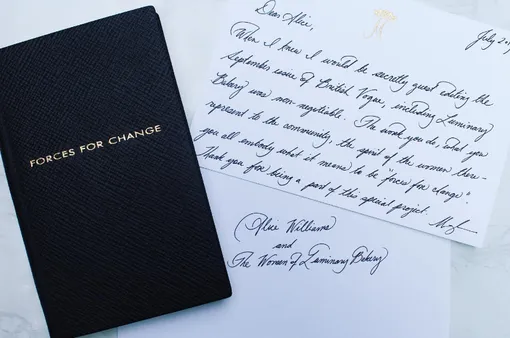 FORCES FOR CHANGE
Dear Alice,
July 20
When I knew I would be secretly guest editing the
September issue of British Vogue, including Luminary
Bakery was non-negotiable. The work you do, what you
represent to the community, the spirit of the women there -
you all embody what it means to be "forces for change".
Thank you for being a part of this special project.
Alice Williams
and
The Women of Luminary Bakery